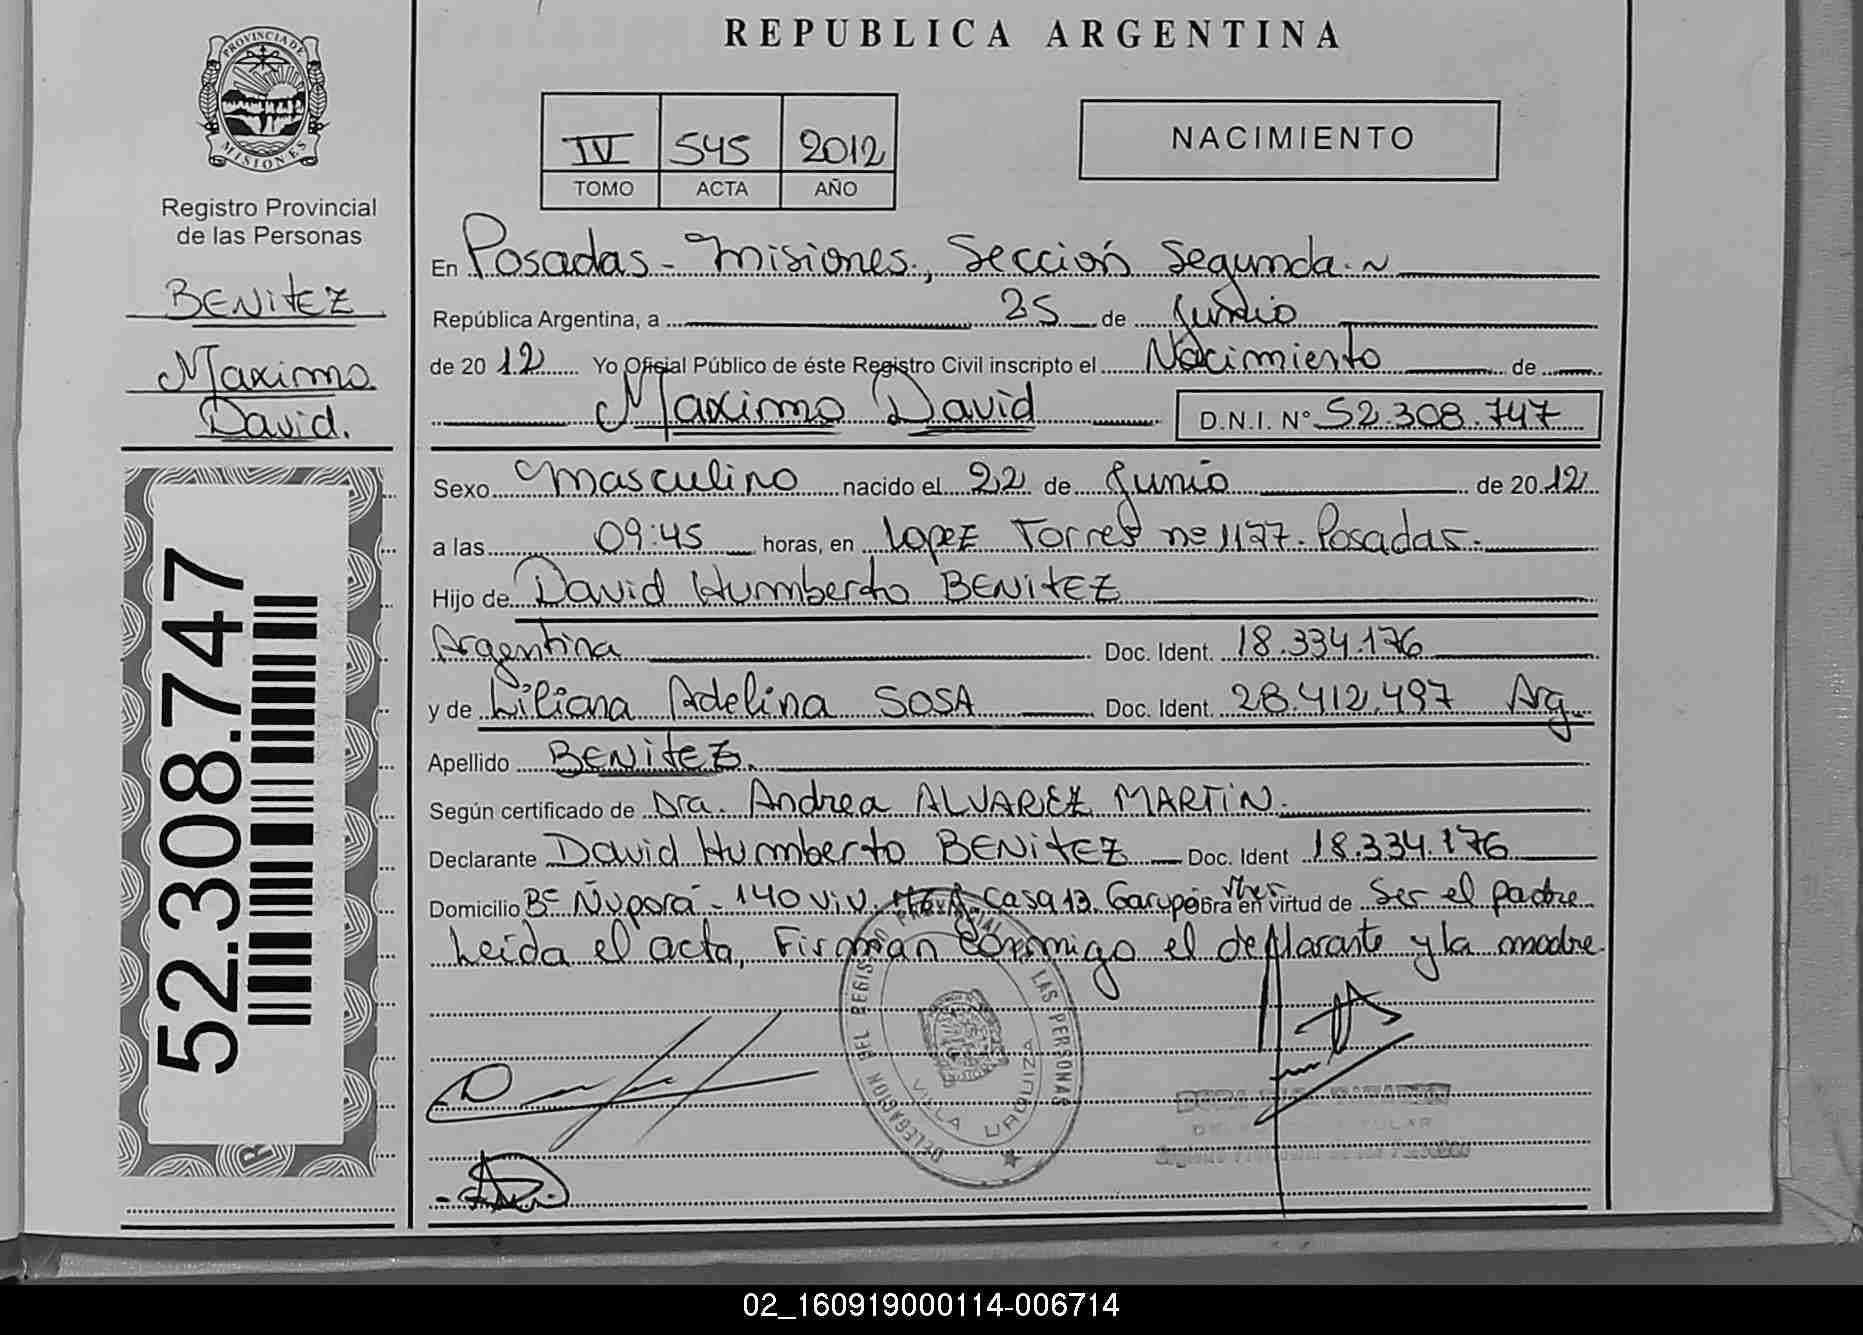 REPUBLICA ARGENTINA
PROVINCIA DE
MISIONES
Registro Provincial
de las Personas
BENITEZ
Maximo
David.
52.308.747
IV 545 2012
TOMO ACTA AÑO
NACIMIENTO
En Posadas - Misiones, Sección Segunda.
República Argentina, a 25 de Junio
de 20 12 Yo Oficial Público de éste Registro Civil inscripto el Nacimiento de
Maximo David D.N.I. Nº 52.308.747
Sexo Masculino nacido el 22 de Junio de 20 12
a las 09:45 horas, en Lopez Torres nº 1177. Posadas.
Hijo de David Humberto BENITEZ
Argentina Doc. Ident. 18.334.176
y de Liliana Adelina SOSA Doc. Ident. 28.412.497 Arg.
Apellido BENITEZ.
Según certificado de Dra. Andrea ALVAREZ MARTIN.
Declarante David Humberto BENITEZ Doc. Ident 18.334.176
Domicilio Bº Ñuporá - 140 Viv. Casa 13. Garupá Obra en virtud de Ser el padre
Leida el acta, Firman conmigo el declarante y la madre
DELEGACION DEL REGISTRO PROVINCIAL DE LAS PERSONAS
VILLA URQUIZA
02_160919000114-006714